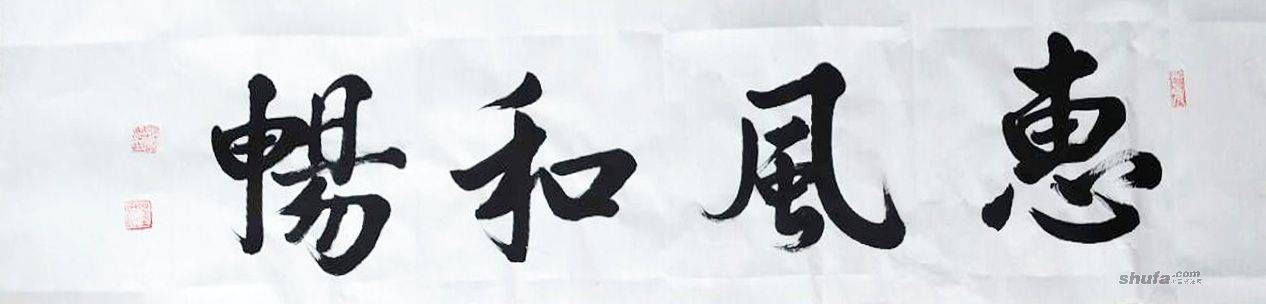 恵風和暢
shufa.com